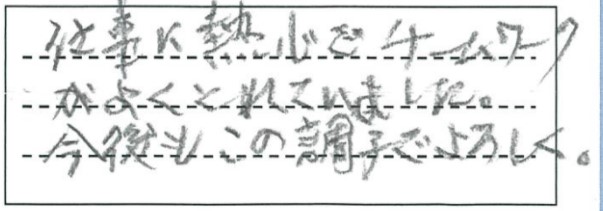 仕事に熱心でチームワーク
がよくとれていました。
今後もこの調子でよろしく。